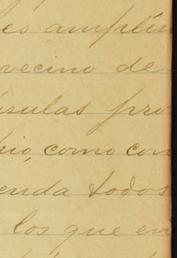 es amplín
vecino de
sulas pro
pio, como con
enda todos
los que en